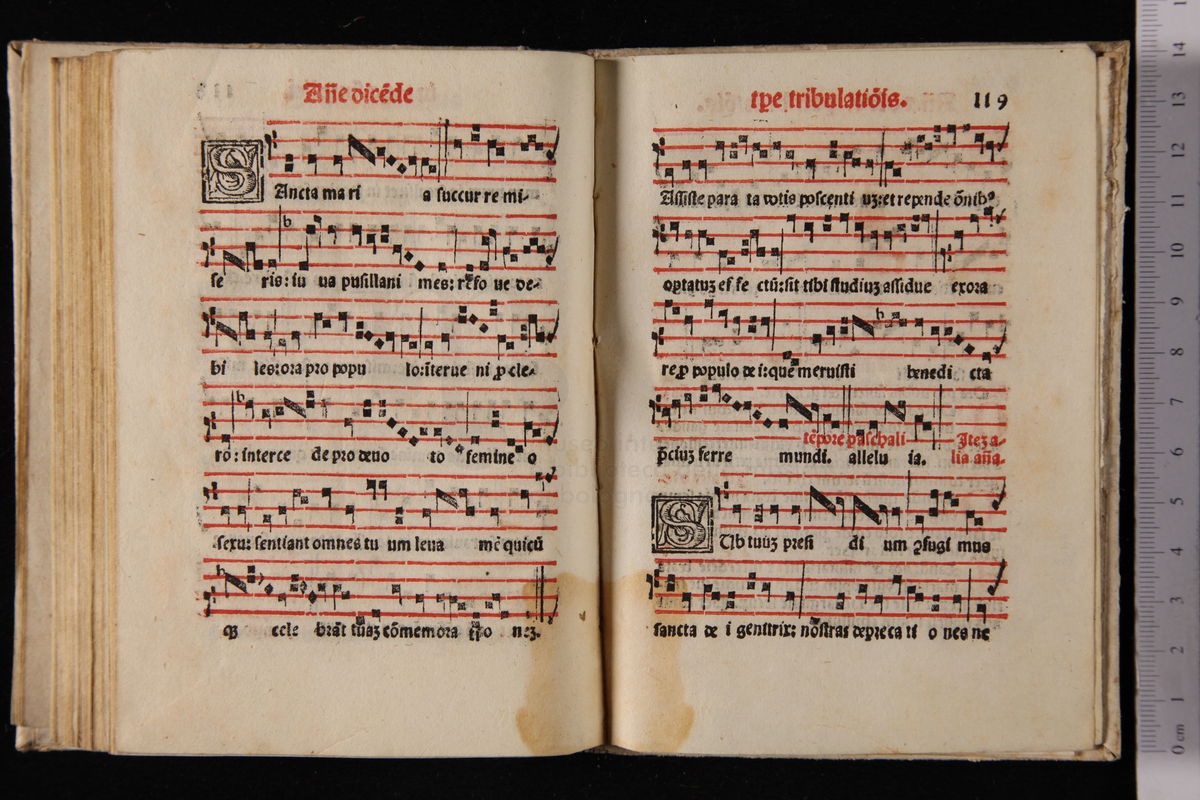 Añe dicẽde
SAncta mari a succur re mi-
se ris: iu ua pusillani mes: refo ue de-
bi les: ora pro popu lo: iterue ni p̱ cle-
rō: interce de pro deuo to femine o
sexu: sentiant omnes tu um leua mē quicū
cele brãt tuaz cōmemora
tp̄e tribulatiōis. 119
Assiste para ta votis poscenti uz: et repende ōnibꝰ
optatuz ef fe ctū: sit tibi studiuz assidue exora
re p̱ populo de i: que meruisti benedi cta
tēpore paschali Itez a-
p̄ciuz ferre mundi. allelu ia. lia aña.
SUb tuuz presi di um ꝯfugi mus
sancta de i genitrix: nostras depreca ti o nes ne
0 cm 1 2 3 4 5 6 7 8 9 10 11 12 13 14